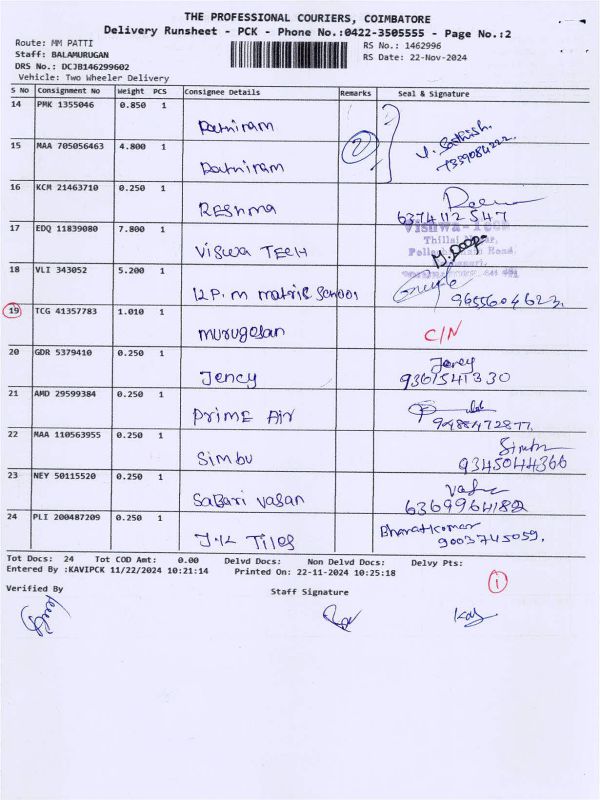 THE PROFESSIONAL COURIERS, COIMBATORE
Delivery Runsheet - PCK - Phone No.:0422-3505555 - Page No.:2
Route: MM PATTI
RS No.: 1462996
Staff: BALAMURUGAN
RS Date: 22-Nov-2024
DRS No.: DCJB146299602
Vehicle: Two Wheeler Delivery
S No Consignment No Weight PCS Consignee Details Remarks Seal & Signature
14 PMK 1355046 0.850 1 Ratniram
15 MAA 705056463 4.800 1 Ratniram 2 V. Sathish. 7339084222
16 KCM 21463710 0.250 1 RESHMA 6374112547
17 EDQ 11839080 7.800 1 VISWA TECH Vishwa-Tech
18 VLI 343052 5.200 1 12 P.M matric School 9655604623.
19 TCG 41357783 1.010 1 murugesan C/N
20 GDR 5379410 0.250 1 Jency Jency 9361541330
21 AMD 29599384 0.250 1 PRIME AIR 9488472877
22 MAA 110563955 0.250 1 SIMBU Simbu 9345044366
23 NEY 50115520 0.250 1 SABARI VASAN 6369964182
24 PLI 200487209 0.250 1 J.K TILES Bharatkumar 9003745059.
Tot Docs: 24 Tot COD Amt: 0.00 Delvd Docs: Non Delvd Docs: Delvy Pts:
Entered By :KAVIPCK 11/22/2024 10:21:14 Printed On: 22-11-2024 10:25:18
1
Verified By
Staff Signature